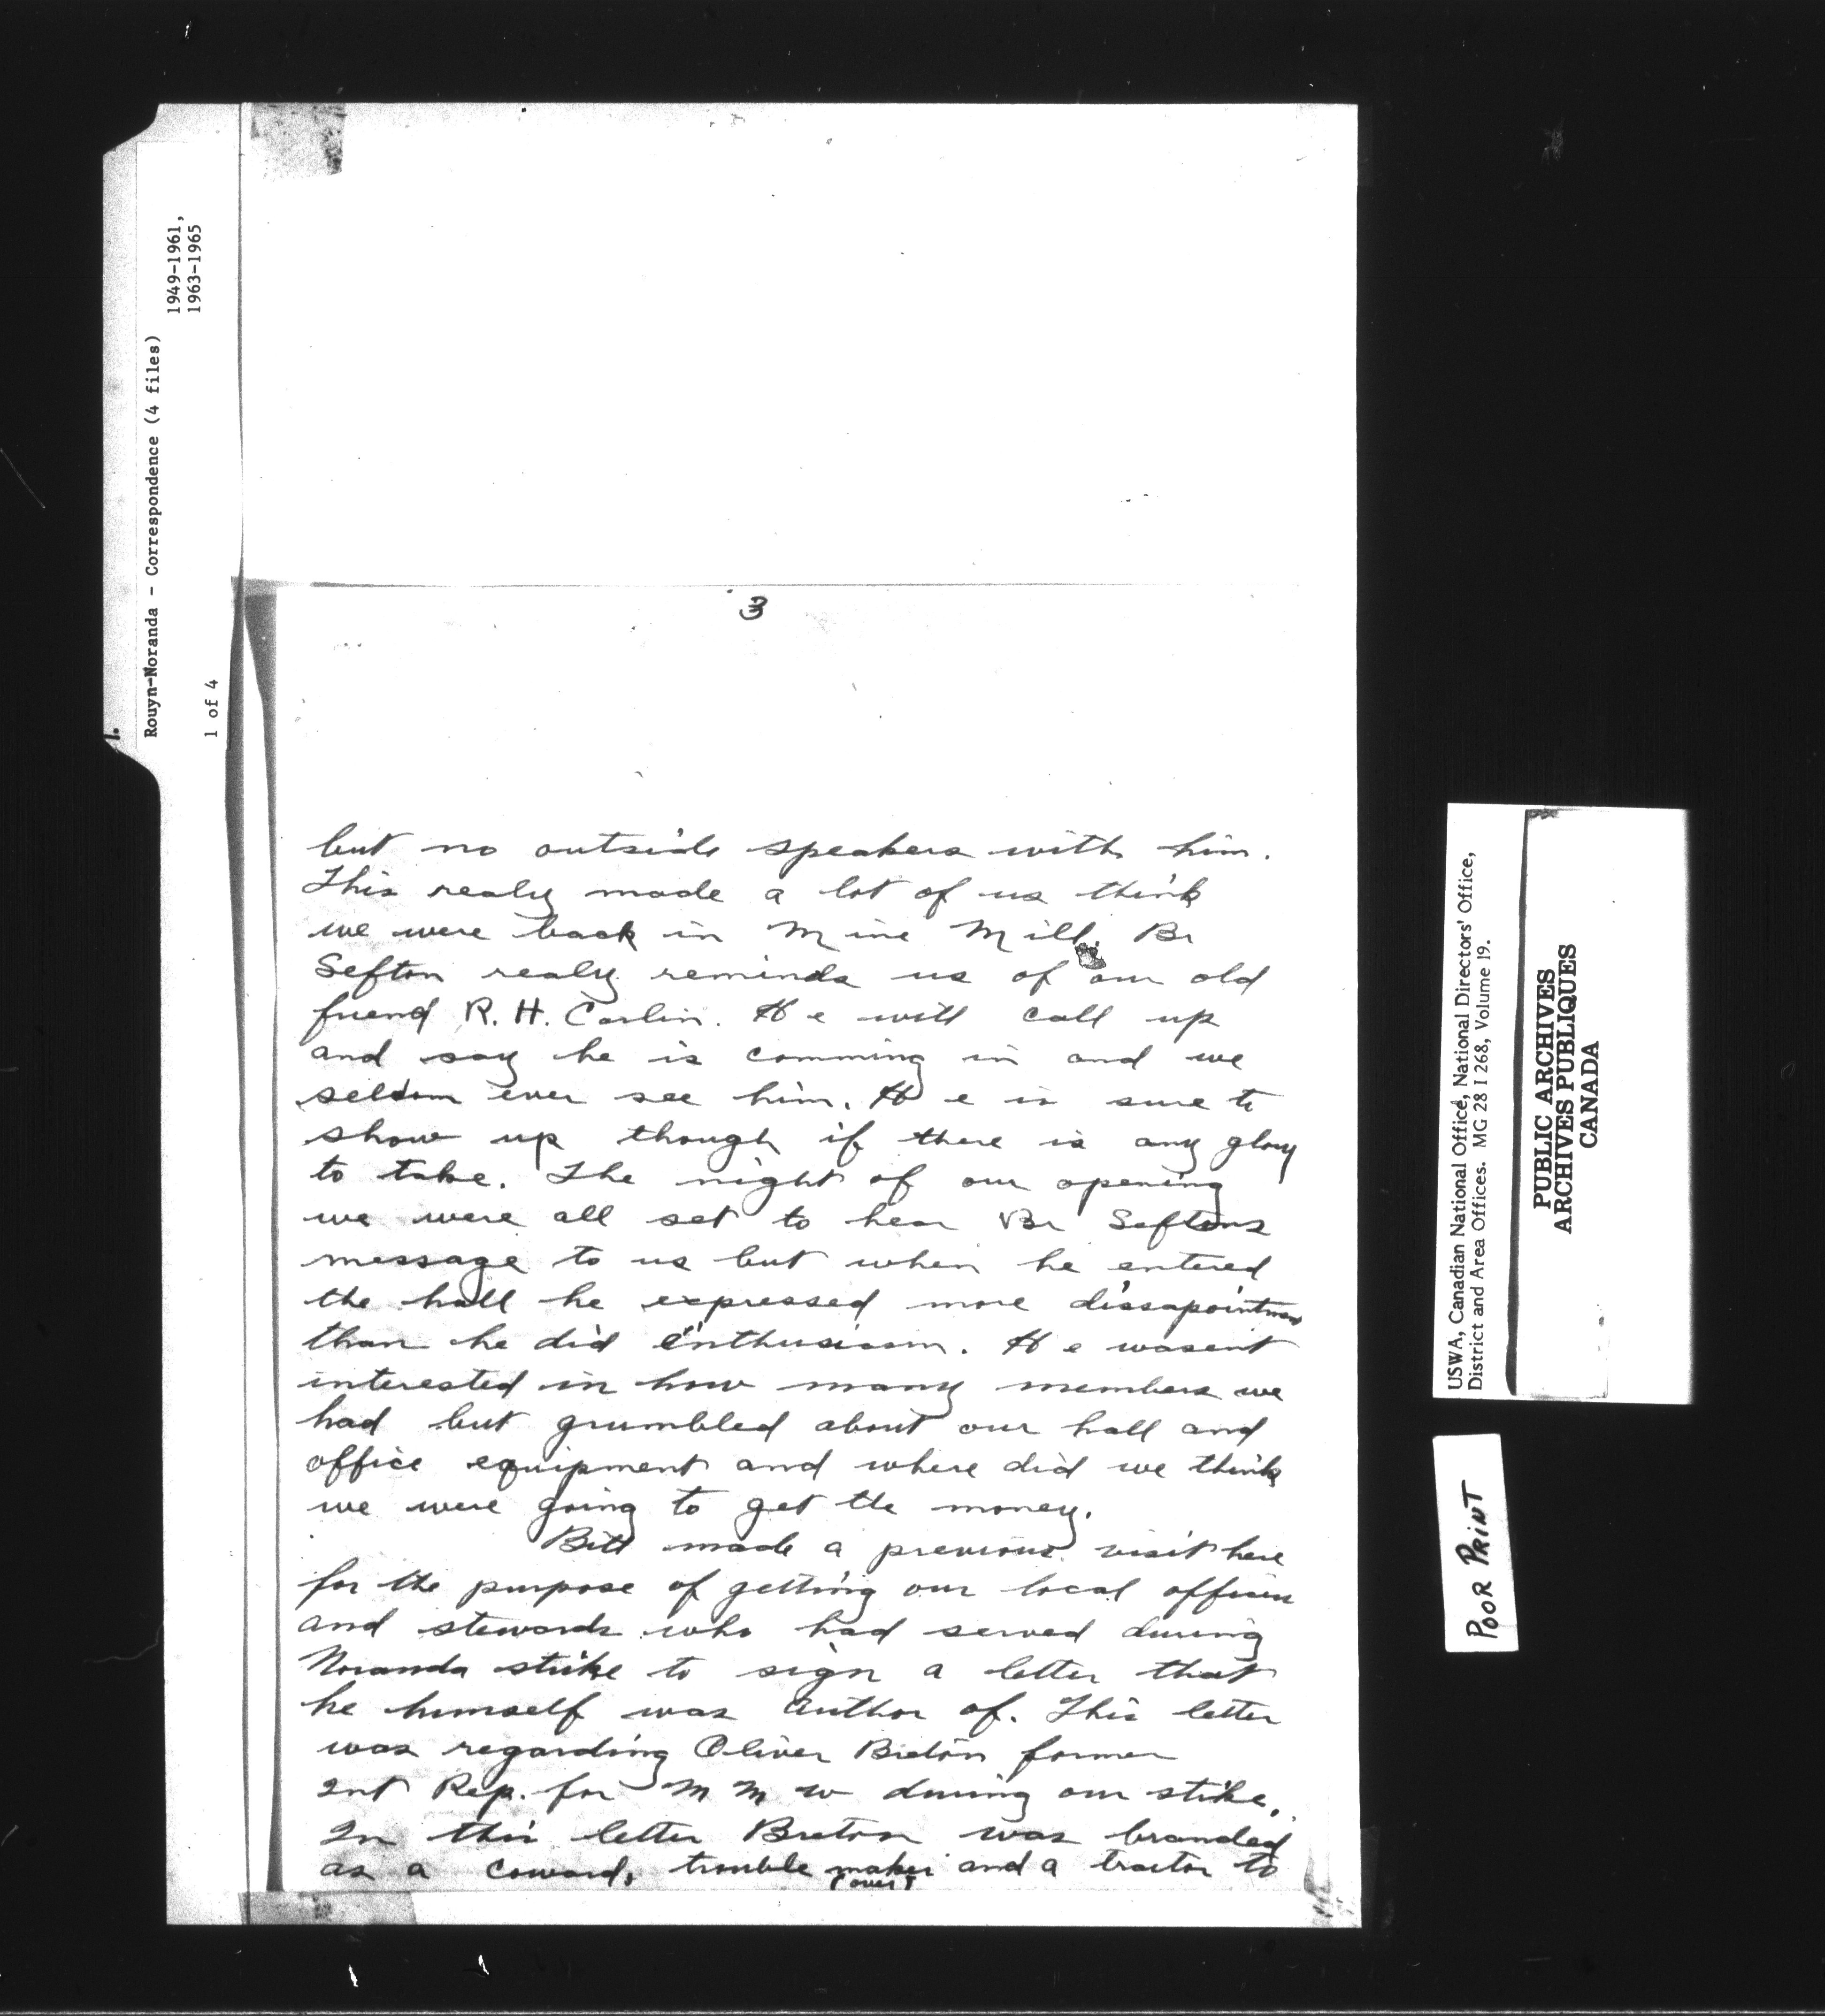 1.
Rouyn-Noranda - Correspondence (4 files)
1949-1961,
1963-1965
1 of 4
3
but no outside speakers with him.
This realy made a lot of us think
we were back in Mine Mill. Br
Sefton realy reminds us of our old
friend R. H. Carlin. He will call up
and say he is comming in and we
seldom ever see him. He is sure to
show up though if there is any glory
to take. The night of our opening
we were all set to hear Br Seftons
message to us but when he entered
the hall he expressed more dissapointment
than he did enthusiasm. He wasent
interested in how many members we
had but grumbled about our hall and
office equipment and where did we think
we were going to get the money.
Bill made a previous visit here
for the purpose of getting our local officers
and stewards who had served during
Noranda strike to sign a letter that
he himself was author of. This letter
was regarding Oliver Breton former
Int Rep. for M M W during our strike.
In this letter Breton was branded
as a coward, trouble maker and a traitor to
(over)
USWA, Canadian National Office, National Directors' Office,
District and Area Offices. MG 28 I 268, Volume 19.
PUBLIC ARCHIVES
ARCHIVES PUBLIQUES
CANADA
POOR PRINT